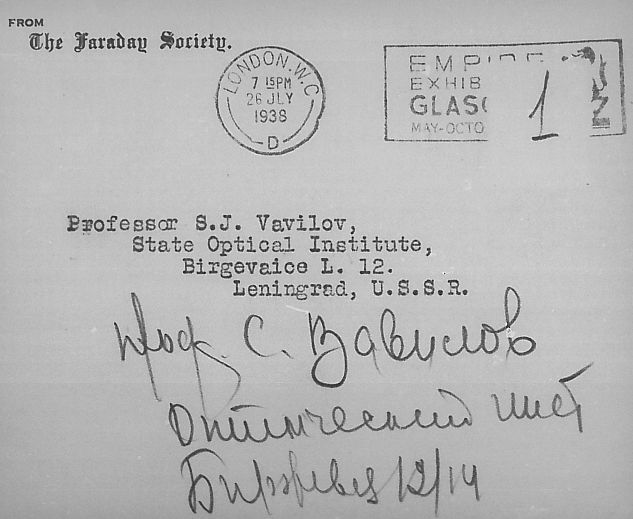 FROM
The Faraday Society.
LONDON. W.C
7 15PM
26 JLY
1938
D
EXHIB
GLASG
MAY-OCTO
1
Professor S.J. Vavilov,
State Optical Institute,
Birgevaice L. 12.
Leningrad, U.S.S.R.
проф. С. Вавилов
Оптический инст
Биржевая 12/14